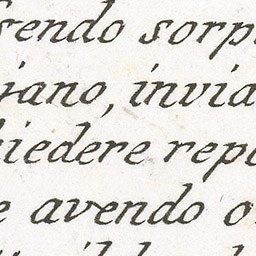 sendo sorp
jano, invia
iedere repl
e avendo o